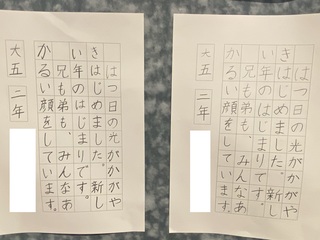 はつ日の光がかがや
きはじめました。新し
い年のはじまりです。
兄も弟も、みんなあ
かるい顔をしています。
大五 二年
はつ日の光がかがや
きはじめました。新し
い年のはじまりです。
兄も弟も、みんなあ
かるい顔をしています。
大五 二年